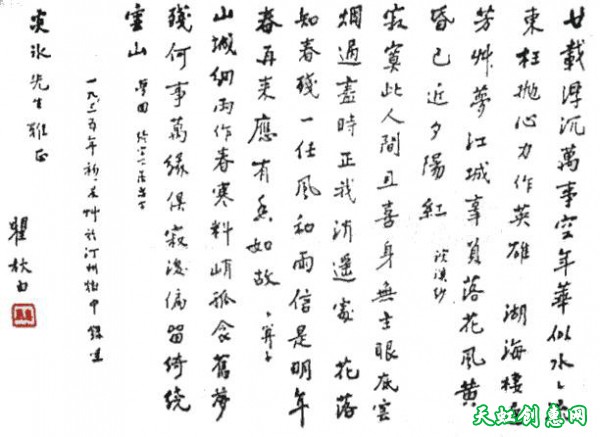 廿載浮沉萬事空年華似水〻流
東枉拋心力作英雄 湖海棲遲
芳艸夢江城辜負落花風黃
昏已近夕陽紅 浣溪紗
寂寞此人間且喜身無主眼底雲
烟過盡時正我消遙處 花落
知春殘一任風和雨信是明年
春再來應有香如故 卜算子
山城細雨作春寒料峭孤衾舊夢
殘何事萬緣俱寂後偏留綺繞
雲山 夢回
一九三五年初 艸於汀州獄中 錄呈
炎冰先生雅正
瞿秋白
天虹创意网